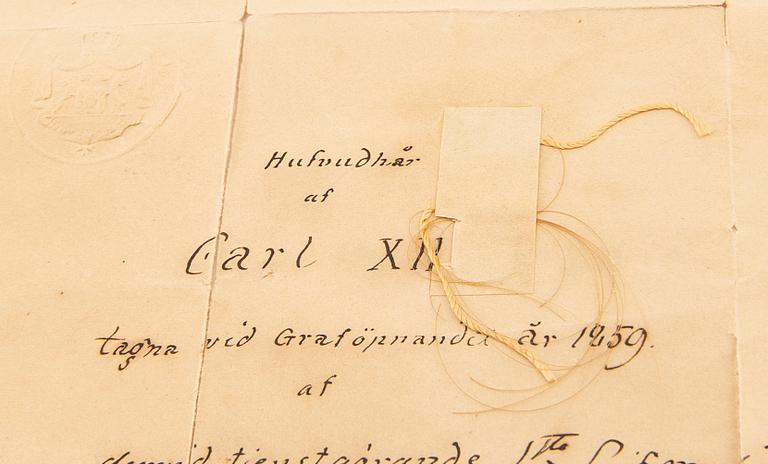 Hufvudhår
af
Carl XII
tagna vid Graföpnandet år 1859.
af
dervid tienstgörande 1ste